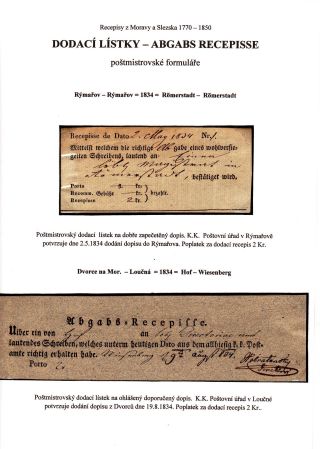 Recepisy z Moravy a Slezska 1770 – 1850
DODACÍ LÍSTKY – ABGABS RECEPISSE
poštmistrovské formuláře
Rýmařov – Rýmařov = 1834 = Römerstadt – Römerstadt
Recepisse de Dato 2. May 1834 Nr. 1.
Mittelst welchem die richtige Abgabe eines wohlversie-
gelten Schreibens, lautend an
löbl. Magistrat in
Römerstadt, bestätiget wird.
Porto fl. kr.
Recomm. Gebühr kr. bezahlt.
Recepisse 2 kr.
Poštmistrovský dodací lístek na dobře zapečetěný dopis. K.K. Poštovní úřad v Rýmařově
potvrzuje dne 2.5.1834 dodání dopisu do Rýmařova. Poplatek za dodací recepis 2 Kr.
Dvorce na Mor. – Loučná = 1834 = Hof – Wiesenberg
Abgabs-Recepisse.
Ueber ein von Hof an
lautendes Schreiben, welches unterm heutigen Dato aus dem allhiesig k. k. Post-
amte richtig erhalten habe. Wiesenberg 19 Aug 834.
Porto
Poštmistrovský dodací lístek na ohlášený doporučený dopis. K.K. Poštovní úřad v Loučné
potvrzuje dodání dopisu z Dvorců dne 19.8.1834. Poplatek za dodací recepis 2 Kr..